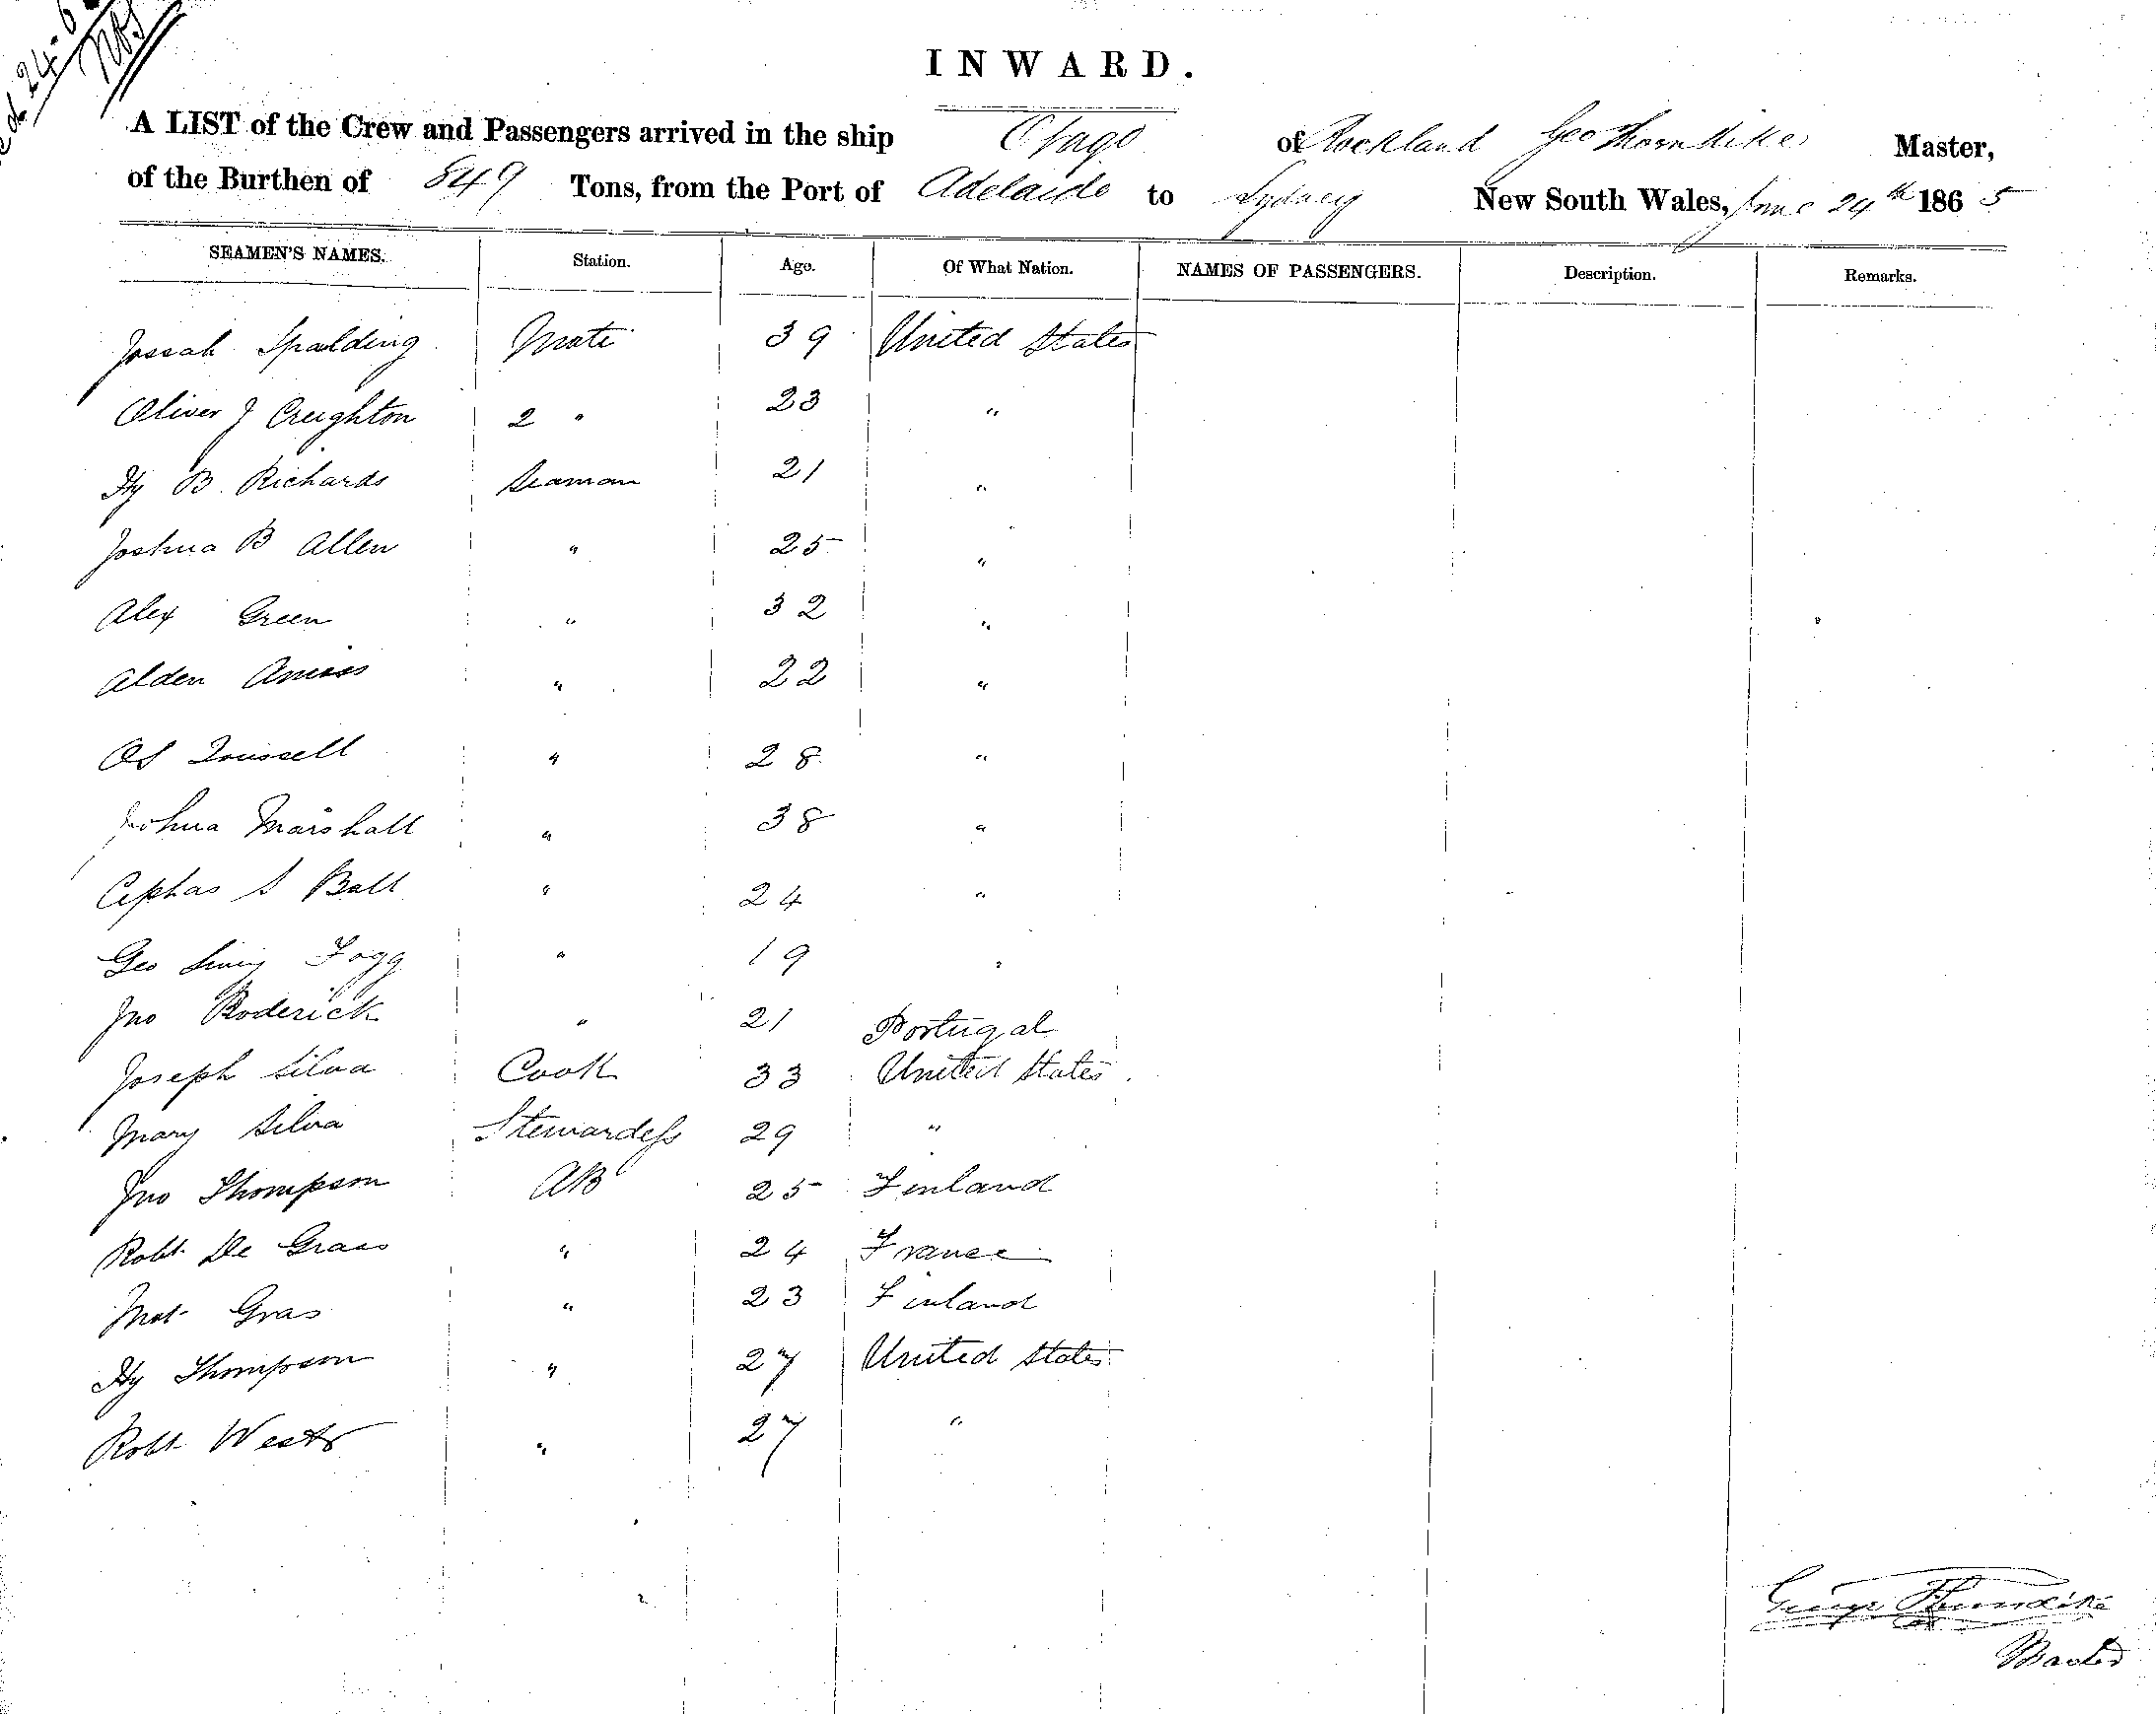 ed 24-6
INWARD.
A LIST of the Crew and Passengers arrived in the ship Otago of Rockland Geo Thorndike Master,
of the Burthen of 849 Tons, from the Port of Adelaide to Sydney New South Wales, June 24th 1865
SEAMEN'S NAMES. Station. Age. Of What Nation. NAMES OF PASSENGERS. Description. Remarks.
Jossah Spalding Mate 39 United States
Oliver J Creighton 2 " 23 "
Hy B. Richards Seaman 21 "
Joshua B Allen " 25 "
Alex Green " 32 "
Alden " 22 "
" 28 "
Marshall " 38 "
Cephas S Ball " 24 "
Geo Fogg " 19 "
Jno Roderick " 21 Portugal
Joseph Silva Cook 33 United States
Mary Silva Stewardess 29 "
Jno Thompson AB 25 Finland
Robt De Grass " 24 France
Mat Gras " 23 Finland
Hy Thompson " 27 United States
Robt " 27 "
George Thorndike
Master